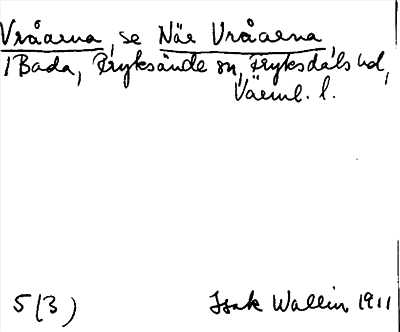 Vråarna, se När Vråarna,
i Bada, Fryksände sn, Fryksdals hd,
Värml. l.
5(3) Isak Wallin 1911